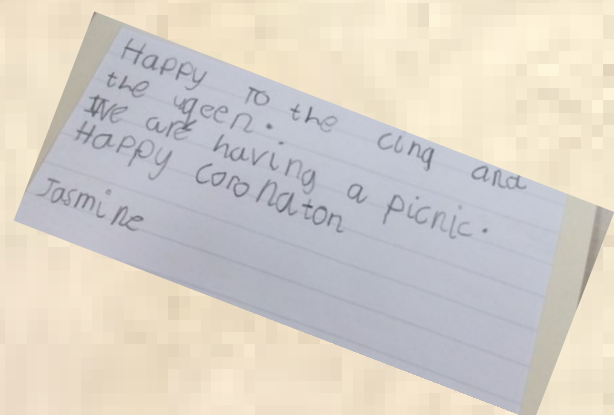 Happy To the cing and
the uqeen.
We are having a picnic.
Happy coronaton
Jasmine